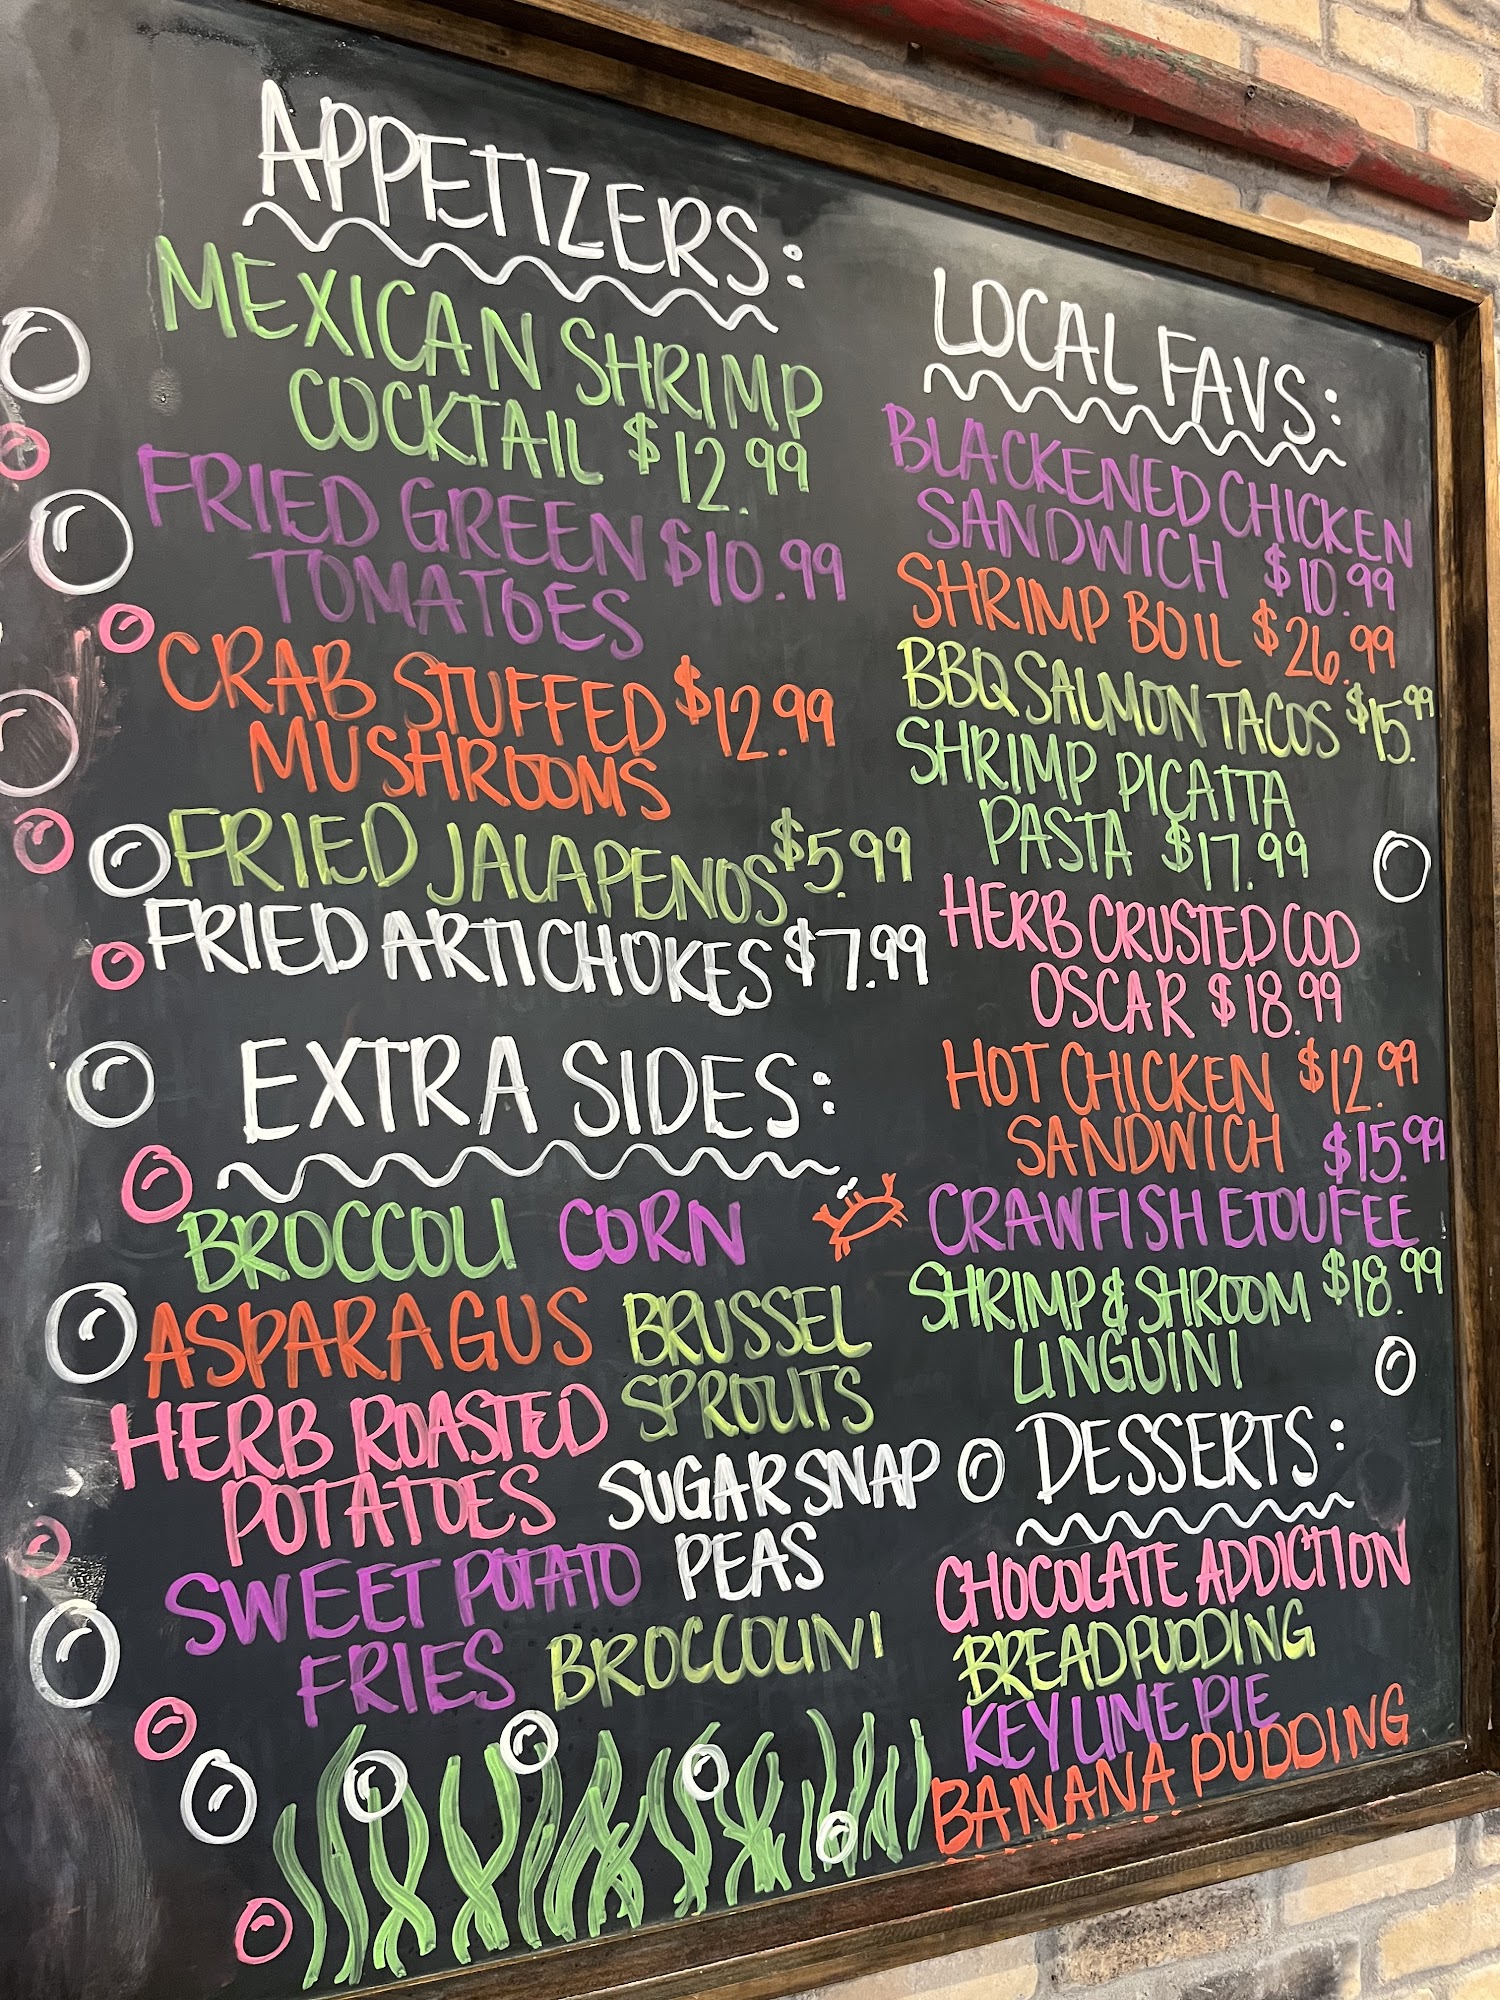 APPETIZERS:
MEXICAN SHRIMP
COCKTAIL $12.99
FRIED GREEN $10.99
TOMATOES
CRAB STUFFED $12.99
MUSHROOMS
FRIED JALAPENOS $5.99
FRIED ARTICHOKES $7.99
EXTRA SIDES:
BROCCOLI CORN
ASPARAGUS BRUSSEL
SPROUTS
HERB ROASTED
POTATOES
SUGAR SNAP
PEAS
SWEET POTATO
FRIES
BROCCOLINI
LOCAL FAVS:
BLACKENED CHICKEN
SANDWICH $10.99
SHRIMP BOIL $26.99
BBQ SALMON TACOS $15.99
SHRIMP PICATTA
PASTA $17.99
HERB CRUSTED COD
OSCAR $18.99
HOT CHICKEN $12.99
SANDWICH
$15.99
CRAWFISH ETOUFEE
SHRIMP & SHROOM $18.99
LINGUINI
DESSERTS:
CHOCOLATE ADDICTION
BREAD PUDDING
KEY LIME PIE
BANANA PUDDING